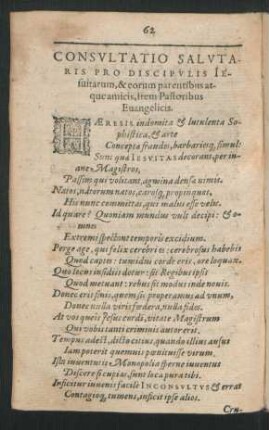 62
CONSVLTATIO SALVTA-
RIS PRO DISCIPVLIS IE-
suitarum, & eorum parentibus at-
que amicis, item Pastoribus
Euangelicis.
HÆRESIS indomita & lutulenta So-
phistica, & arte
Concepta fraudis, barbaries, simul:
Sunt quæ IESVITAS decorant, per in-
ane Magistros,
Passim qui volitant, agmina densa nimis.
Natos, natorum natos, carosq, propinquos,
His nunc committas, qui malus esse velit.
Id quare? Quoniam mundus vult decipi: &
omnis
Extremi spectant temporis excidium.
Perge age, qui felix cerebri es: cerebrosus habebis
Quod captes: tumidus corde eris, ore loquax.
Quo locus insidiis detur: sis Regibus ipsis
Quod metuant: rebus sit modus inde nouis.
Donec eris simis, quòm sic properamus ad vnum,
Donec nulla viri fœdera, nulla fides.
At vos queis Iesus cordi, vitate Magistrum
Qui vobis tanti criminis autor erit.
Tempus adest, dicto citius, quando illius ausus
Iam poterit quemuis pœnituisse virum.
Ista inuentutis Monopolia sperne iuuentus
Discere si cupias, sunt loca pura tibi.
Inficitur iuuenis facile INCONSVLTVS & errat
Contagioq, tumens, inficit ipse alios.
Cru-